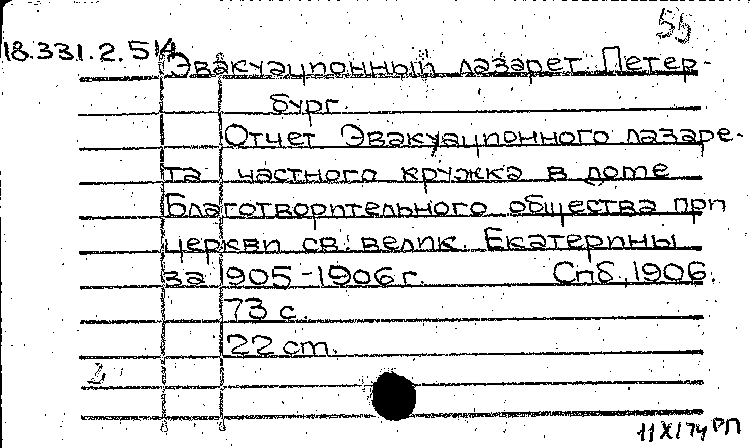 55
18.331.2.514
Эвакуационный лазарет. Петер-
бург.
Отчет Эвакуационного лазаре-
та частного кружка в доме
Благотворительного общества при
церкви св. велик. Екатерины
за 1905-1906 г. Спб, 1906.
73 с.
22 cm.
11 XI 74 РП